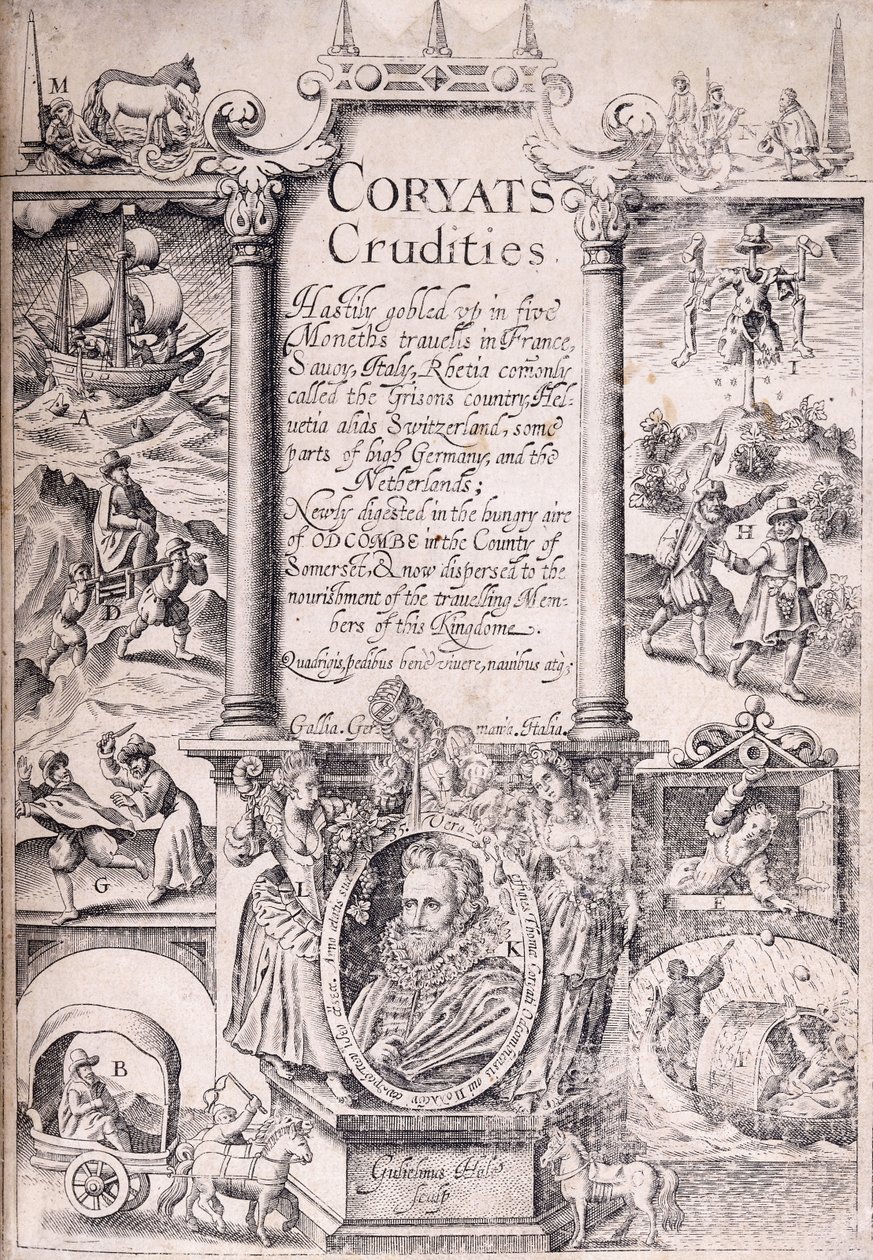 M
N
CORYATS
Crudities
Hastily gobled vp in five
Moneths travells in France,
Savoy, Italy, Rhetia comōnly
called the Grisons country, Hel-
uetia aliàs Switzerland, some
parts of high Germany, and the
Netherlands;
Newly digested in the hungry aire
of ODCOMBE in the County of
Somerset, & now dispersed to the
nourishment of the travelling Mem-
bers of this Kingdome.
Quadrigis, pedibus benè vivere, nauibus atq;
Gallia. Ger mania. Italia.
A
I
D
H
G
E
L
K
B
F
Vera
effigies Thomæ Coryati Odcombiensis
Anno ætatis suæ 35.
Gulielmus Hole
sculp